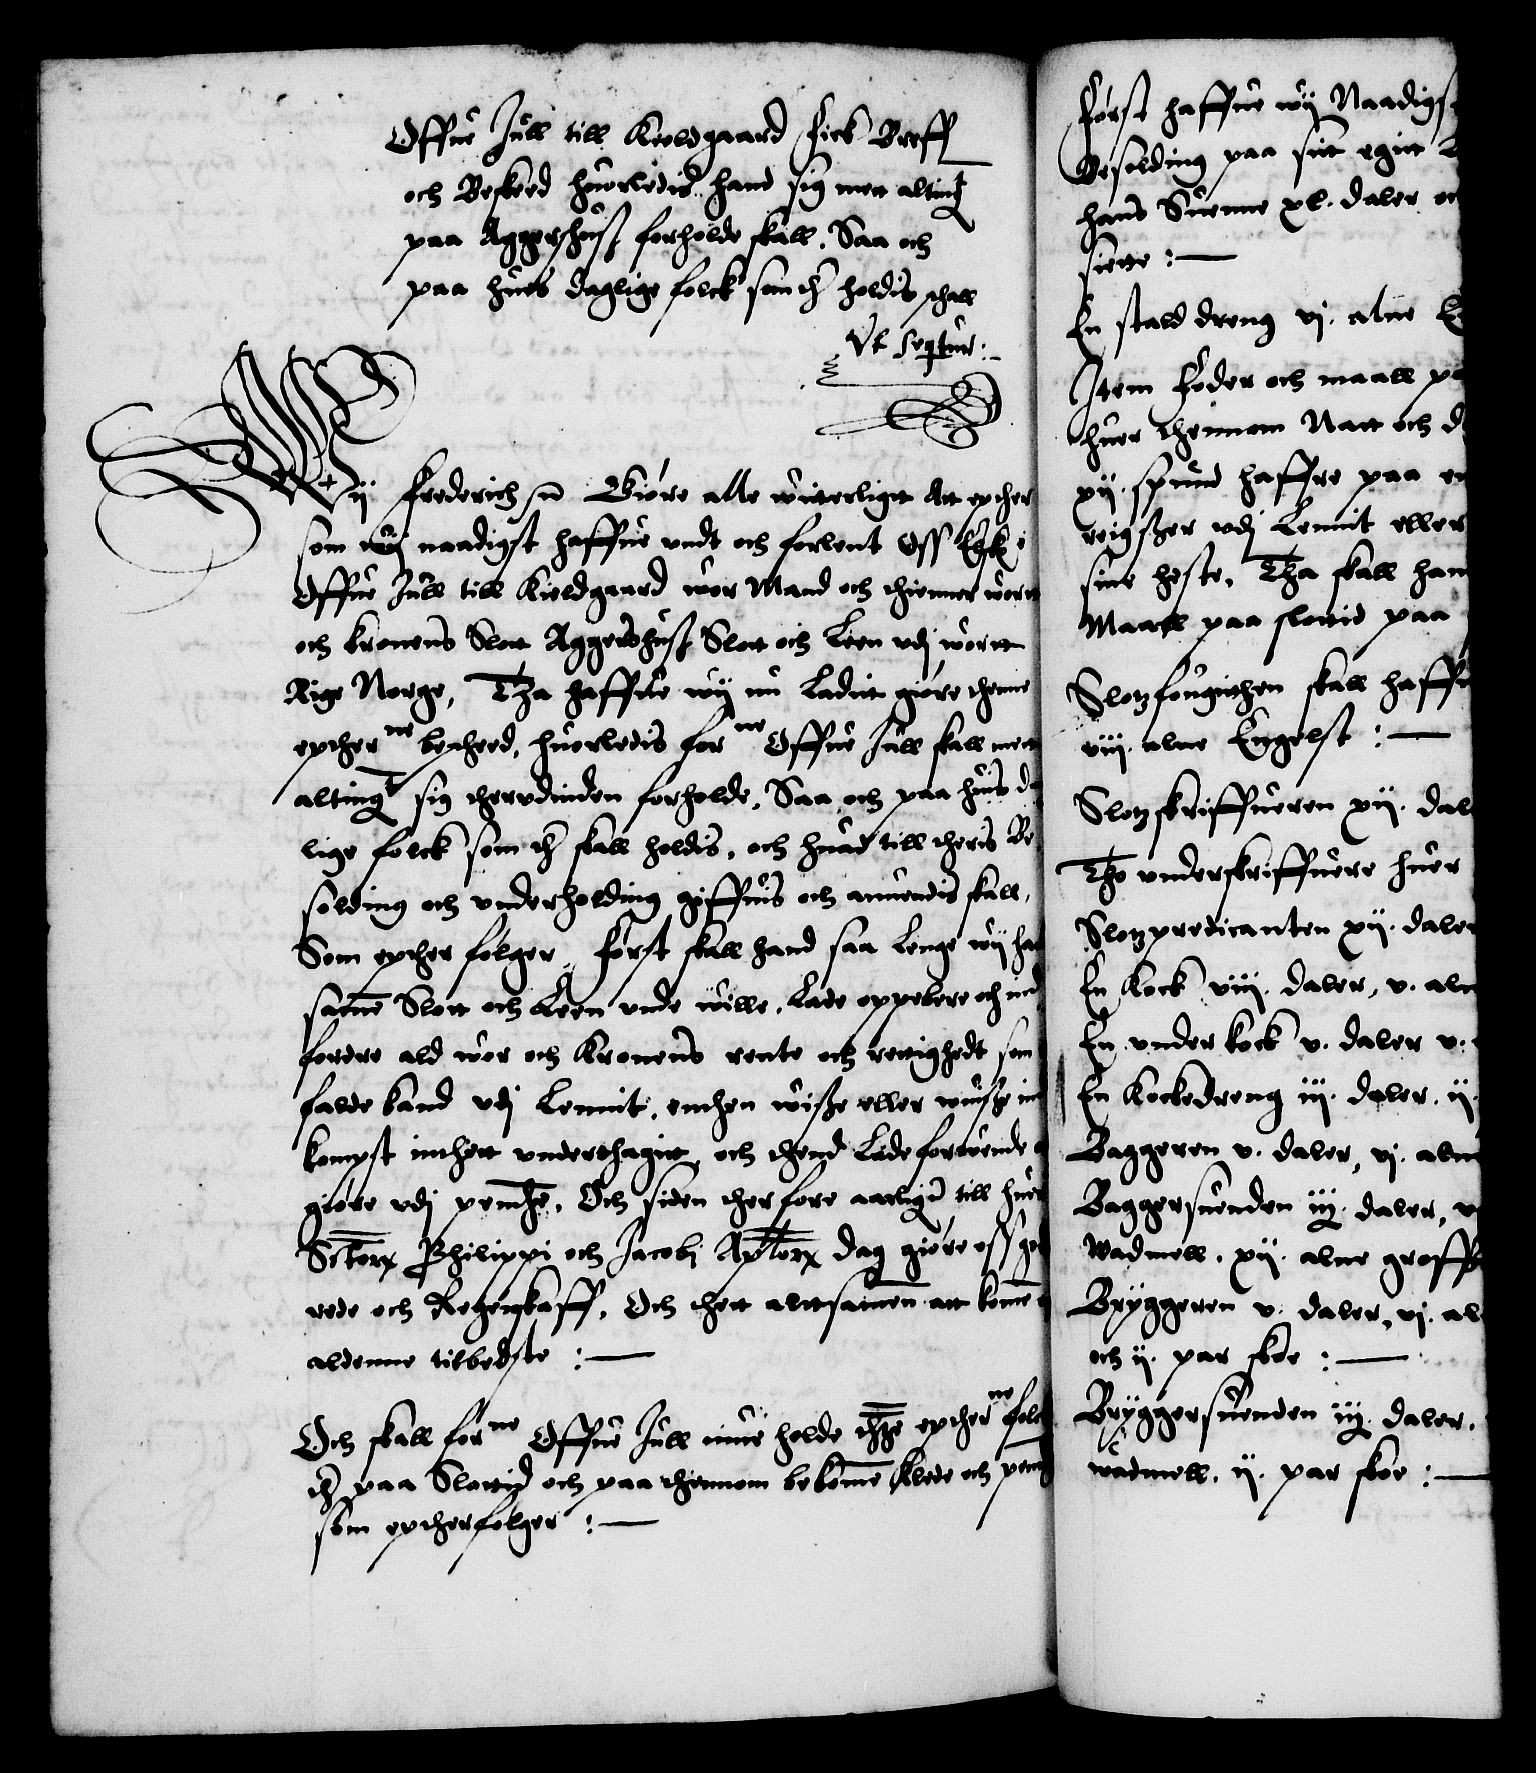 Offue Jull till Kieldgaard Fick Breff
och Beskeed huorledis hand sig mett altingt
paa Aggershuß forholde skall. Saa och
paa hues daglige folck som der holdis schall
Vt Seqtur:
Wij Frederich etc. Giøre alle witterligtt Att epther
som wij naadigst haffue undt och forlent Oss Elskl
Offue Jull till Kieldgaard wor Mand och thienner wortt
och kronens Slott Aggershuß Slott och Leen udj wortt
Rige Norge, Tha haffue wij nu Ladett giøre thenne
epther ne beskeed, huorledis for ne Offue Jull skall mett
altingt sig therudinden forholde, Saa och paa huis da
lige folck som der skall holdis, och huad till theris Be
solding och underholding giffuis och anuendis skall,
Som epther følger, Først skall hand saa Lenge wij ha
samme Slott och Leen unde wille, Lade oppebere och ind
fordre ald wor och Kronens rente och rettighedt som
falde kand udj Lennit, enthen wiße eller uwiße ind
kompst inthett underthagitt, och thend Lade foruende
giøre udj penninge, Och siden therfore aarligen till huer
Sctorum Philippi och Jacobj Aptlorum dag giøre oss go
rede och Regenskaff, Och thett altsamen att komme
aldenne tilbedste :—
Och skall for ne Offue Jull inne holde thesse epther ne folck
der paa Slottid och paa thennom bekomme Klede och penn
som eptherfølger :—
Først haffue wij Naadigst
Besolding paa sitt egitt
hans Suenne xl. daler oc
siette :—
En stald dreng vj. alne E
Item Foder och maall pa
huer thennom Natt och d
xij. spund haffre paa en
reigßer udj Lennit eller
sine heste, Tha skall han
Maall paa slottid paa
Slotzfougithen skall haffu
viij. alne Engelst :—
Slotzskriffueren xij. dal
Tho underskriffuere huer
Slotzpredicanten xij. daler
En Kock viij. daler, v. aln
En underkock v. daler v.
En Kockedreng iij. daler, ij.
Baggeren v. daler, vj. aln
Baggersuenden iij. daler, v
Wadmell, xij. alne groff
Bryggeren v. daler, vj. al
och ij. par skoe :—
Bryggersuenden iij. daler.
wadmell, ij. par skoe :—